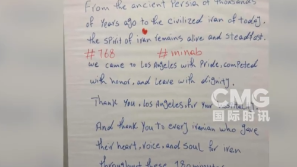 From the ancient Persia of thousands
of years ago to the civilized iran of today,
the spirit of iran remains alive and steadfast.
#168 #minab
we came to Los Angeles with Pride, competed
with honor, and leave with dignity.
Thank You, Los Angeles, for Your
CMG
国际时讯
And thank You to every iranian who gave
their heart, voice, and soul for iran
throughout these